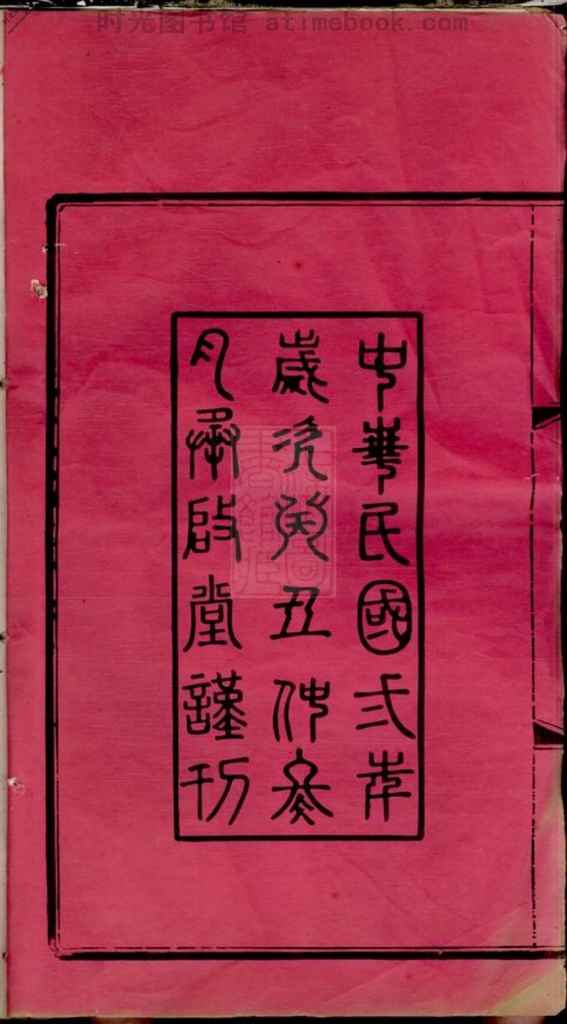 时光图书馆 atimebook.com
中華民國弍年
歲次癸丑仲冬
月承啟堂謹刊